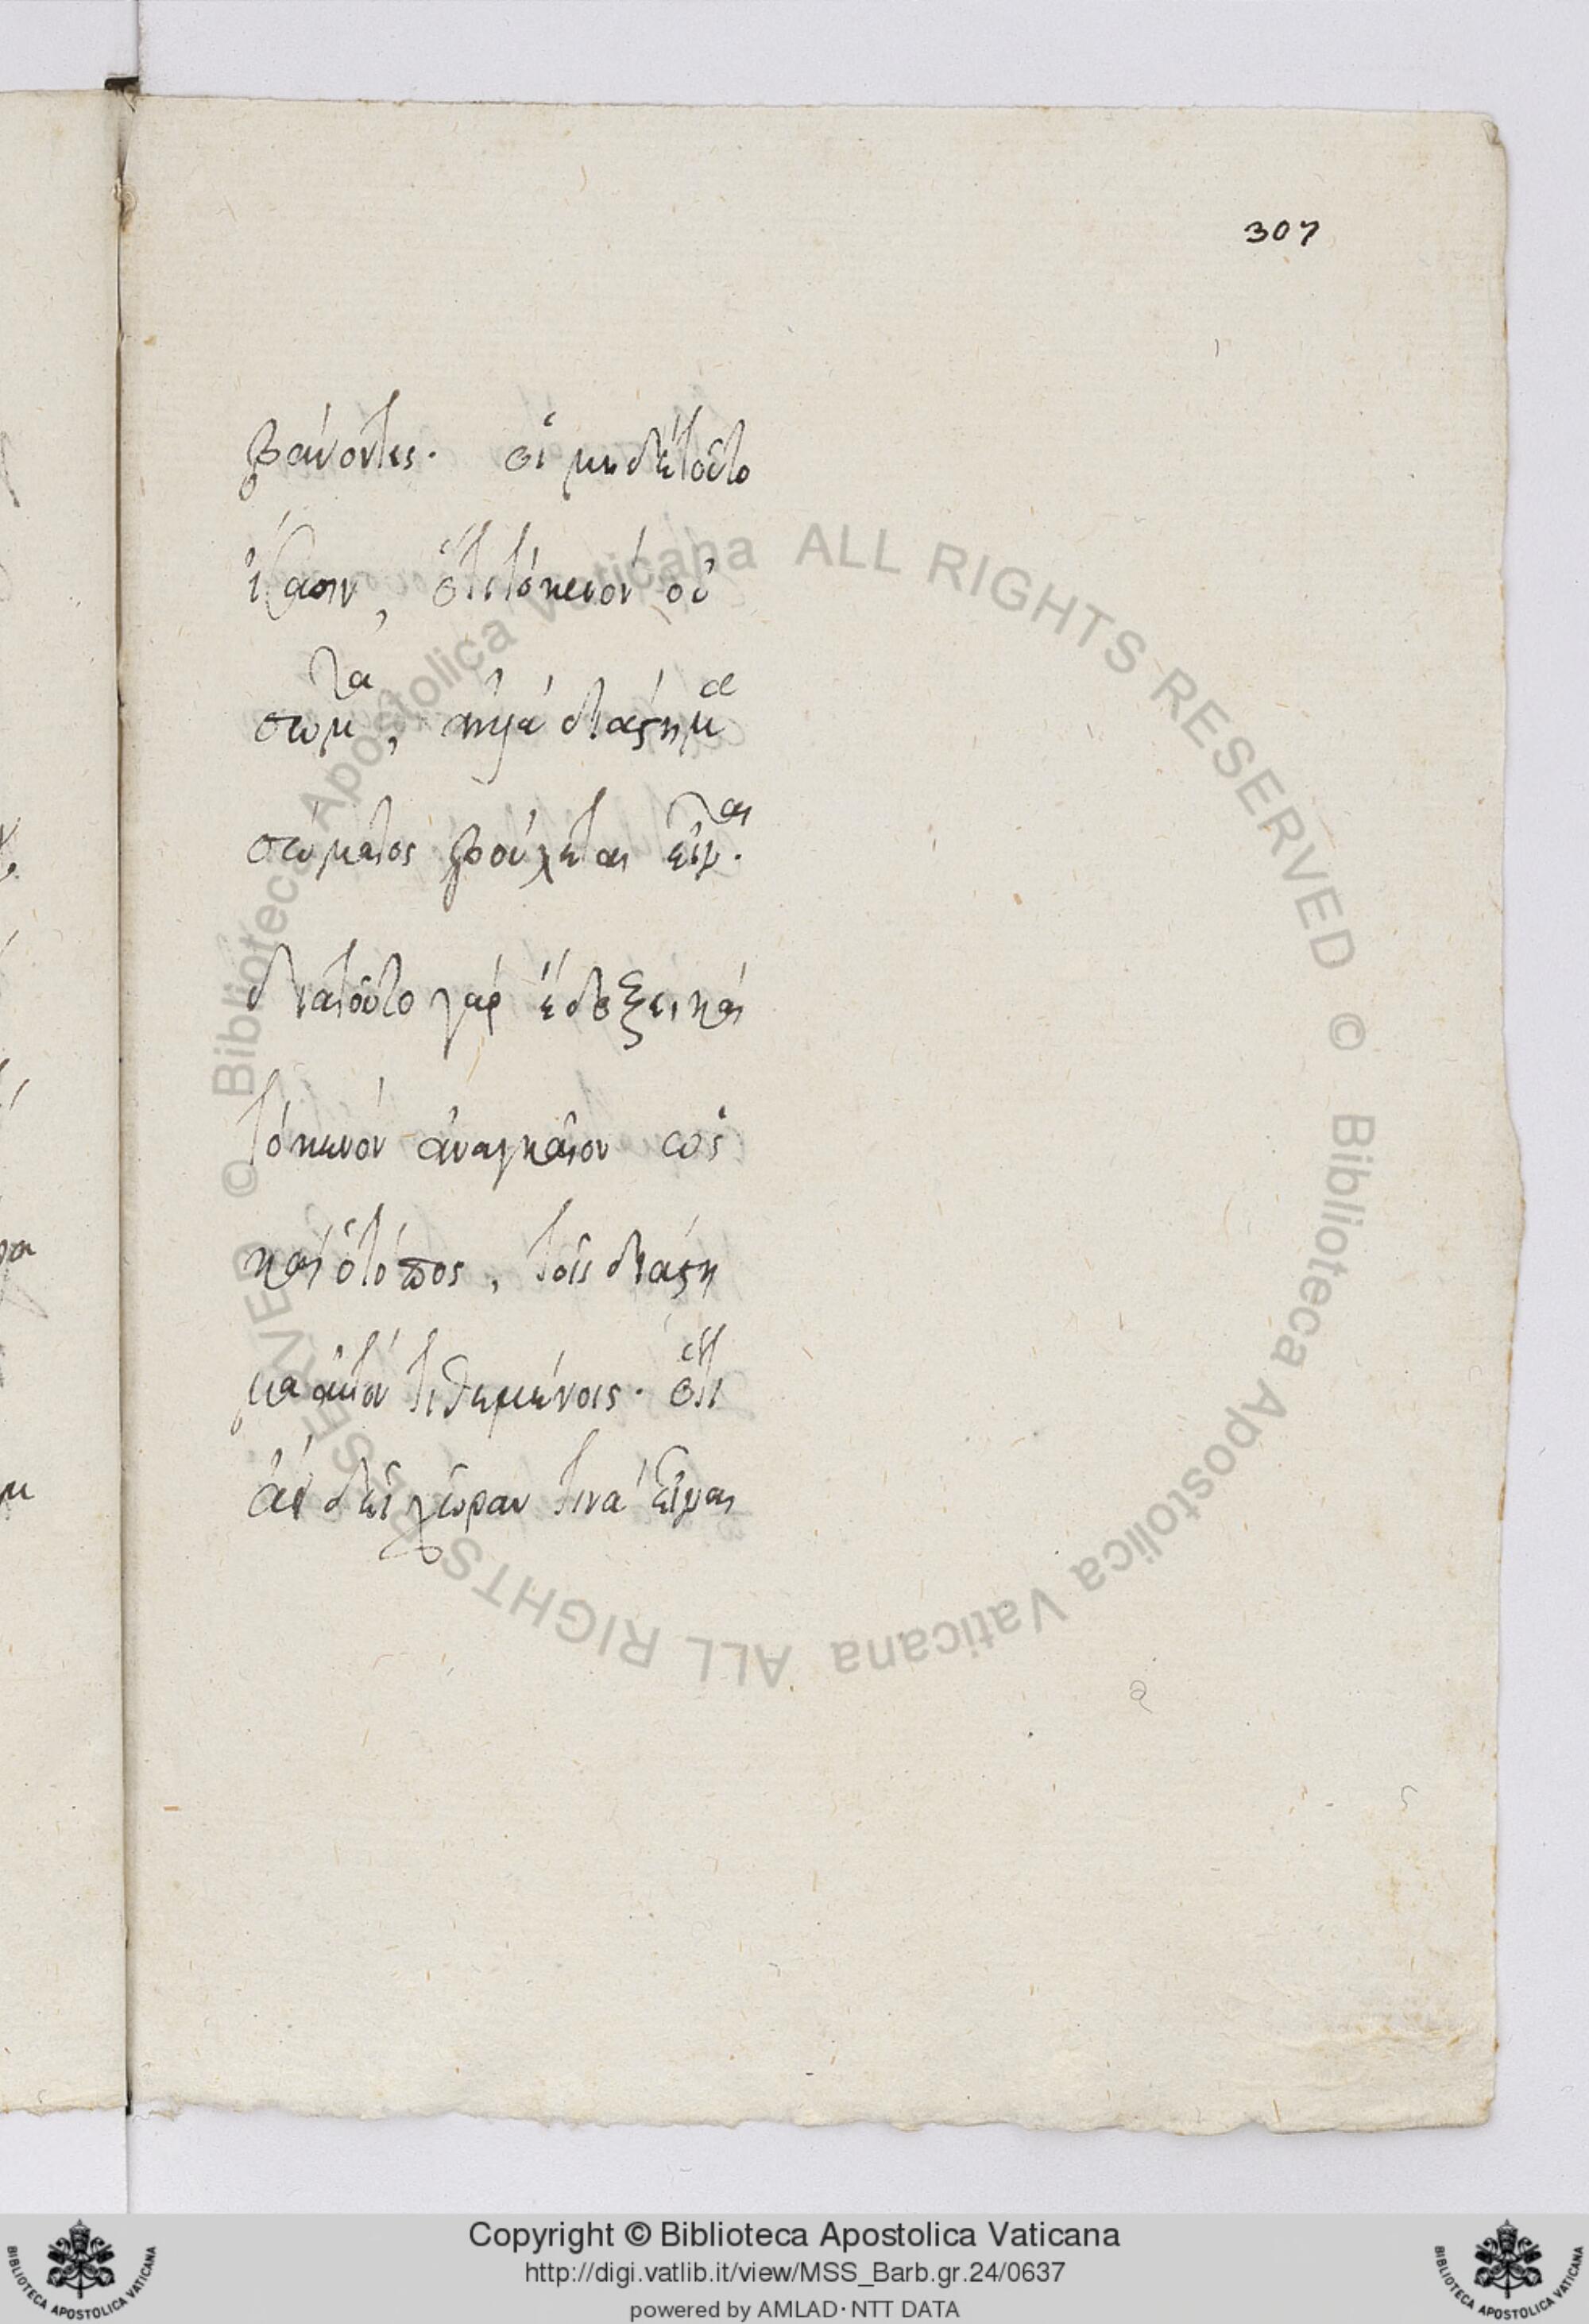 307
βαίνοντες. οἱ μηδὲ τοῦτο
ἴσασιν, ὅτι τὸ κενὸν οὐ
σώματα, ἀλλὰ διάστημα
σώματος βούλεται εἶναι.
διατοῦτο γὰρ ἔδοξε καὶ
τὸ κενὸν ἀναγκαῖον ὡς
καὶ ὁ τόπος, τοῖς διαστή
μα αὐτὸν τιθεμένοις. ὅτι
ἀεὶ δεῖ χώραν τινὰ εἶναι
© Biblioteca Apostolica Vaticana ALL RIGHTS RESERVED © Biblioteca Apostolica Vaticana ALL RIGHTS RESERVED
Copyright © Biblioteca Apostolica Vaticana
http://digi.vatlib.it/view/MSS_Barb.gr.24/0637
powered by AMLAD·NTT DATA
BIBLIOTECA APOSTOLICA VATICANA
BIBLIOTECA APOSTOLICA VATICANA